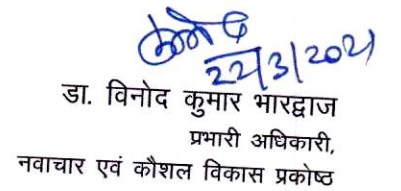 22/3/2021
डा. विनोद कुमार भारद्वाज
प्रभारी अधिकारी,
नवाचार एवं कौशल विकास प्रकोष्ठ